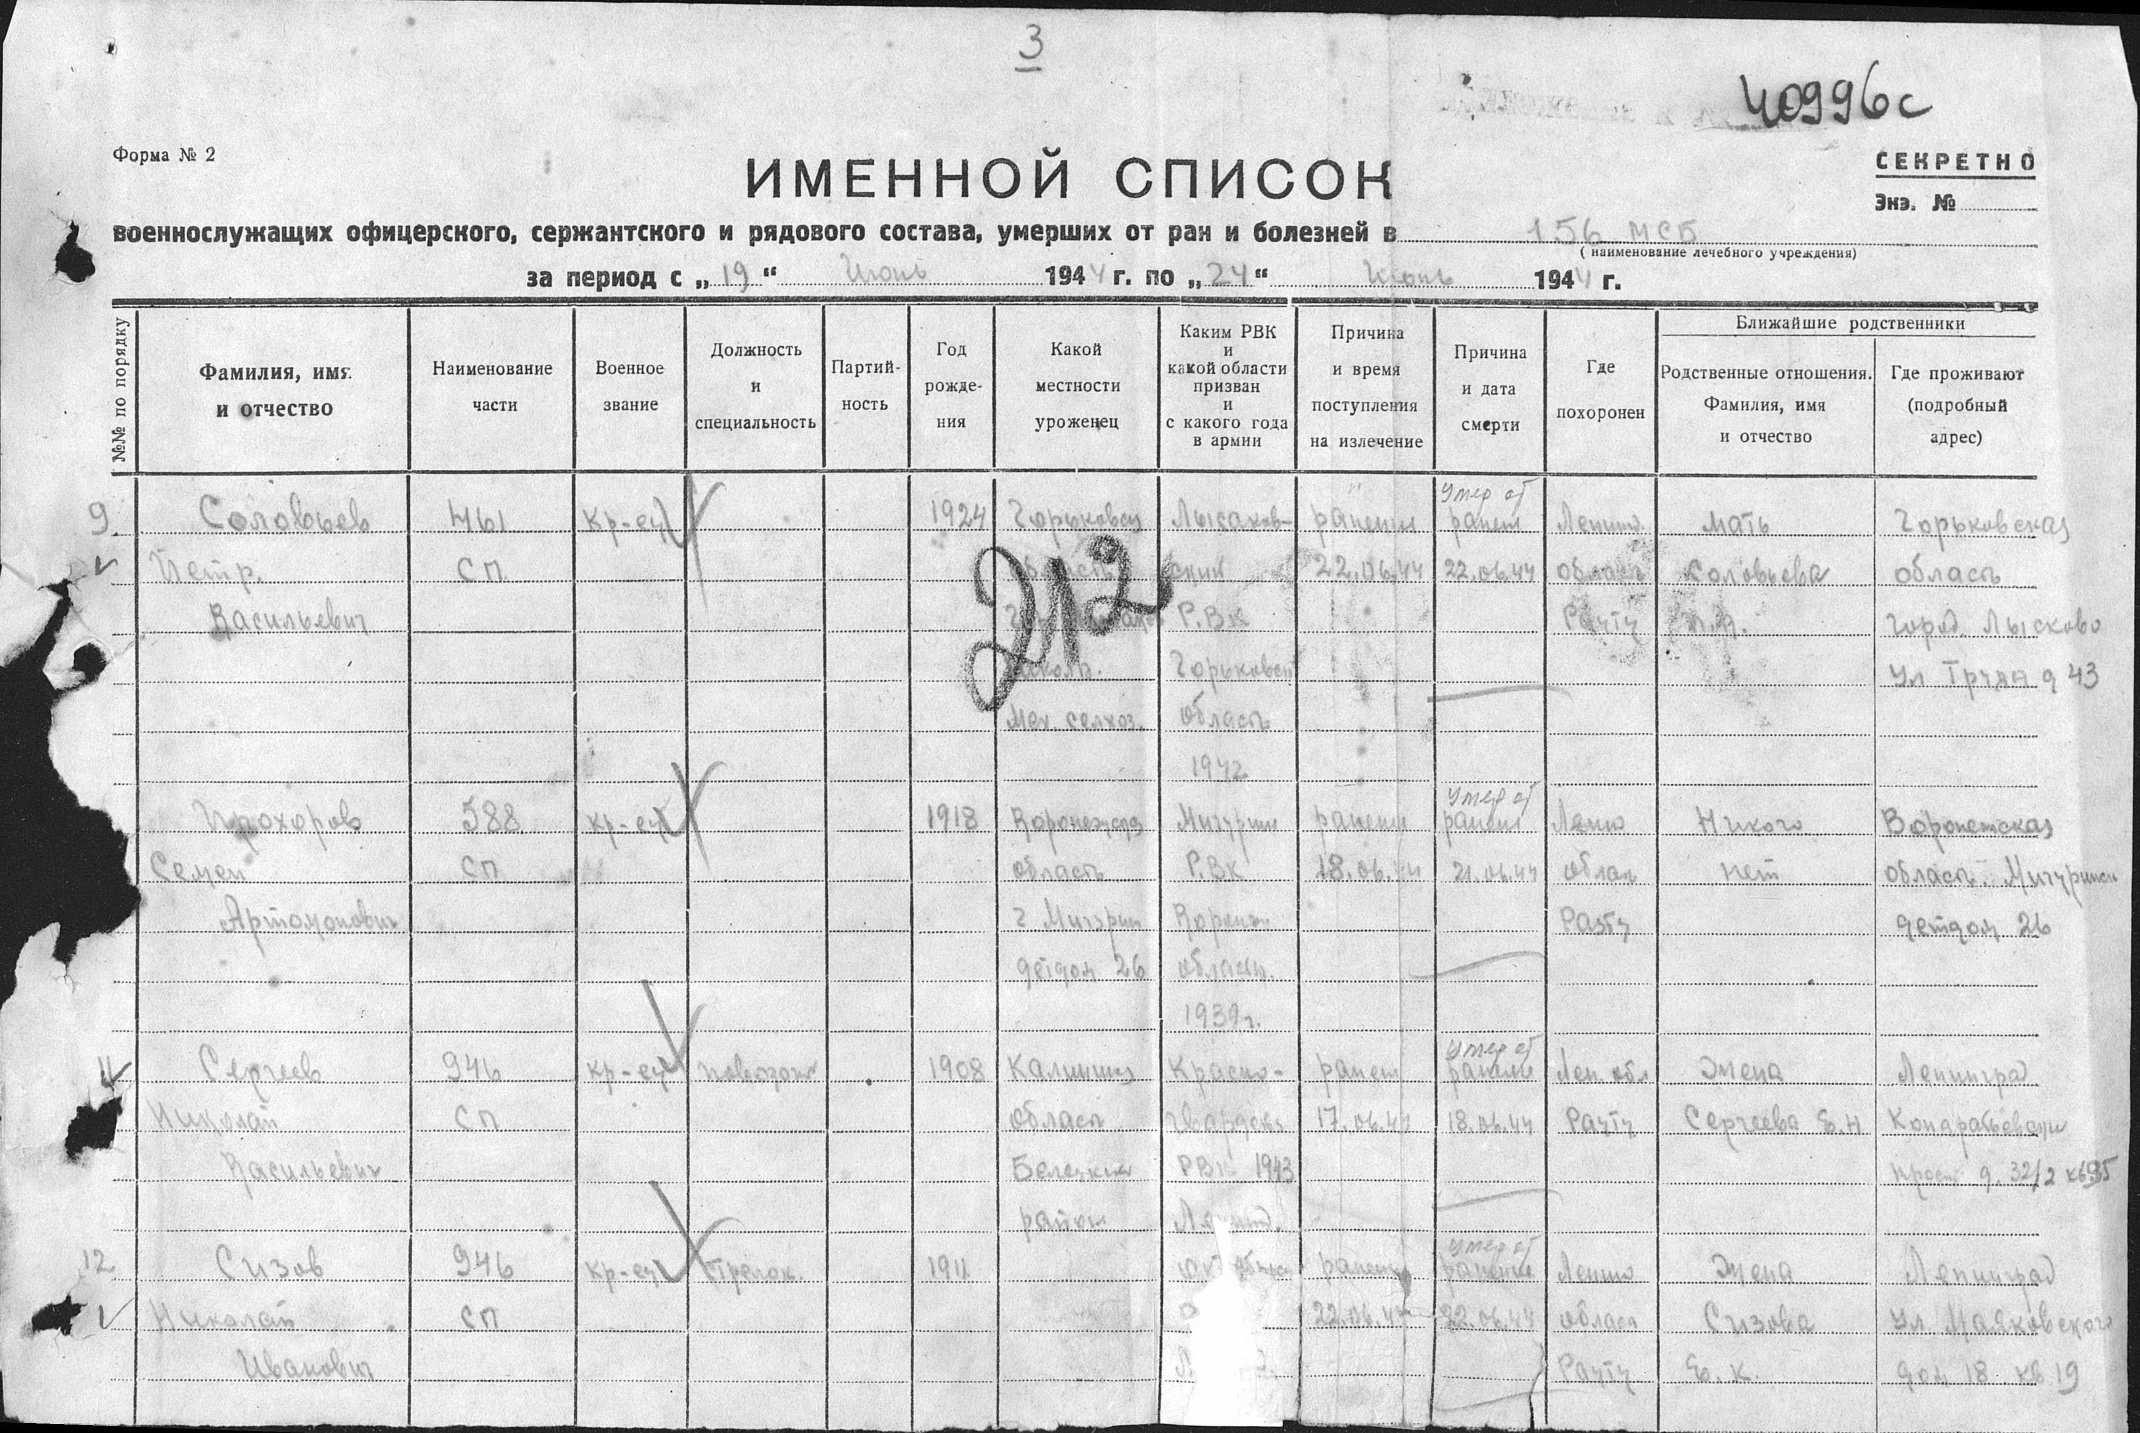 3
40996с
Форма № 2
СЕКРЕТНО
Экз. №
ИМЕННОЙ СПИСОК
военнослужащих офицерского, сержантского и рядового состава, умерших от ран и болезней в 156 МСБ
(наименование лечебного учреждения)
за период с „19“ Июнь 1944 г. по „24“ Июнь 1944 г.
№№ по порядку
Фамилия, имя и отчество
Наименование части
Военное звание
Должность и специальность
Партий-ность
Год рожде-ния
Какой местности уроженец
Каким РВК и какой области призван и с какого года в армии
Причина и время поступления на излечение
Причина и дата смерти
Где похоронен
Ближайшие родственники
Родственные отношения. Фамилия, имя и отчество
Где проживают (подробный адрес)
212
Умер от
9 Соловьев 461 кр-ец 1924 Горьковск Лысков- ранени ранени Ленинг. мать Горьковская
Петр. СП область ский 22.06.44 22.06.44 область Соловьева область
Васильевич РВК город Лысково
Горьковск ул 43
Мех. селхоз. область
1942
Умер от
Прохоров 588 кр-ец 1918 Воронежск Мичурин ранени ранени Ленин Никого Воронежская
Семен СП область РВК 18.06.44 21.06.44 облас нет область Мичуринск
Артомонович г Мичурин Воронеж детдом 26
детдом 26 область.
1939г.
Умер от
11 Сергеев 946 кр-ец повозочн 1908 Калинин Красно- ранен ранени Лен. обл Жена Ленинград
Николай СП област гвардейс 17.06.44 18.06.44 Сергеева Е.Н Кондратьевски
Васильевич РВК 1943 просп д. 32/2 кв 95
район
Умер от
12 Сизов 946 кр-ец Стрелок. 1911 ранени ранени Ленин Жена Ленинград
Николай СП 22.06.44 22.06.44 област Сизова ул Маяковского
Иванович Е. К. дом 18 кв 19